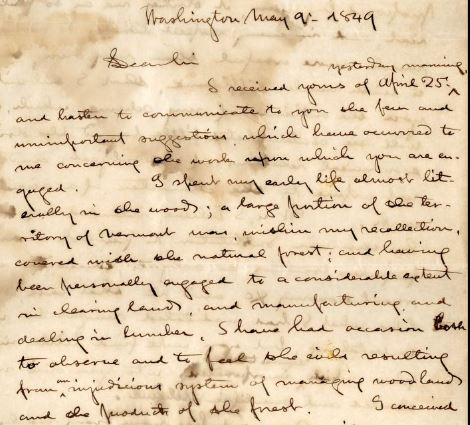 Washington May 9. 1849
Dear Sir yesterday morning,
I received yours of April 25. ^
and hasten to communicate to you the few and
unimportant suggestions, which have occurred to
me concerning the work upon which you are en-
gaged. I spent my early life almost lit-
erally in the woods; a large portion of the ter-
ritory of Vermont was, within my recollection,
covered with the natural forest; and having
been personally engaged to a considerable extent
in clearing lands, and manufacturing, and
dealing in lumber, I have had occasion both
to observe and to feel the evils resulting
from an injudicious system of managing woodlands
and the products of the forest. I conceived